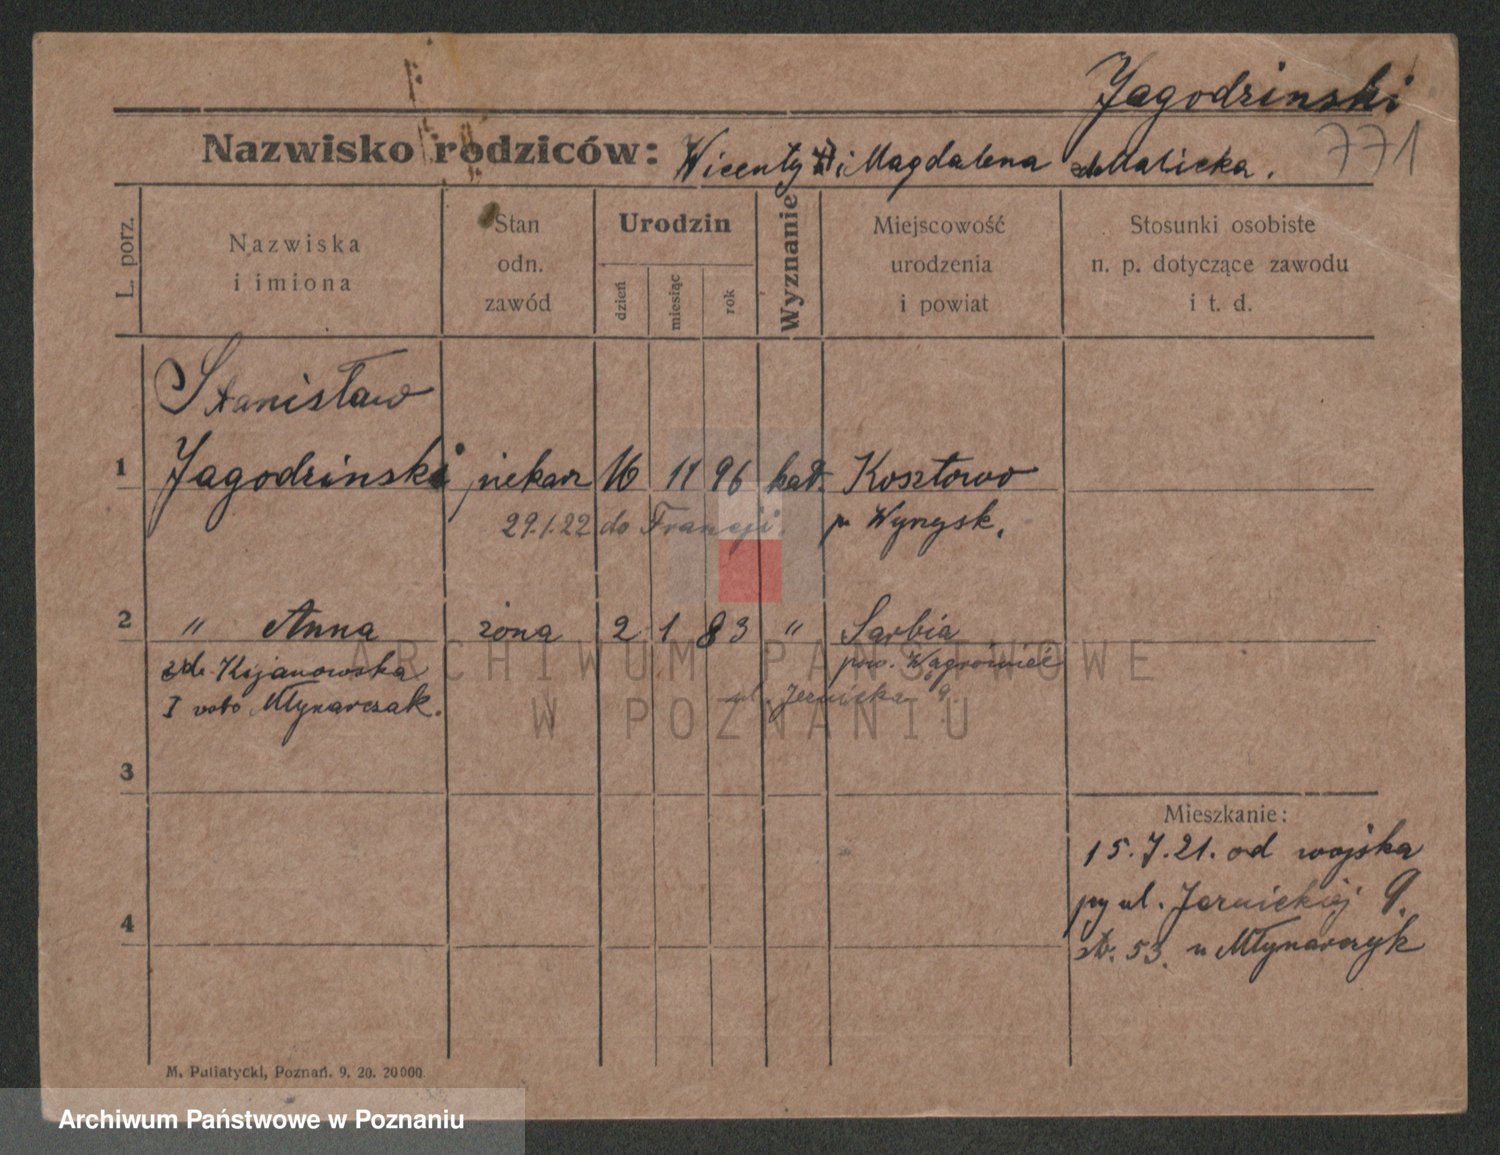 Jagodzinski
Nazwisko rodziców: Wicenty i Magdalena Malicka. 771
L. porz.
Nazwiska
i imiona
Stan
odn.
zawód
Urodzin
dzień
miesiąc
rok
Wyznanie
Miejscowość
urodzenia
i powiat
Stosunki osobiste
n. p. dotyczące zawodu
i t. d.
Stanisław
1 Jagodzinski piekarz 16 11 96 kat. Kosztowo
29.1.22 do Francji. p. Wyrzysk.
2 " Anna żona 2 1 83 " Sarbia
zd. Kijanowska pow. Wągrowiec
I voto Młynarczak. ul. Jeżnicka 9.
3
Mieszkanie:
15.7.21. od wojska
py ul. Jerzickiej 9.
4
st. 53. u Młynarczyk
M. Putiatycki, Poznań. 9. 20. 20000.
ARCHIWUM PAŃSTWOWE
W POZNANIU
Archiwum Państwowe w Poznaniu